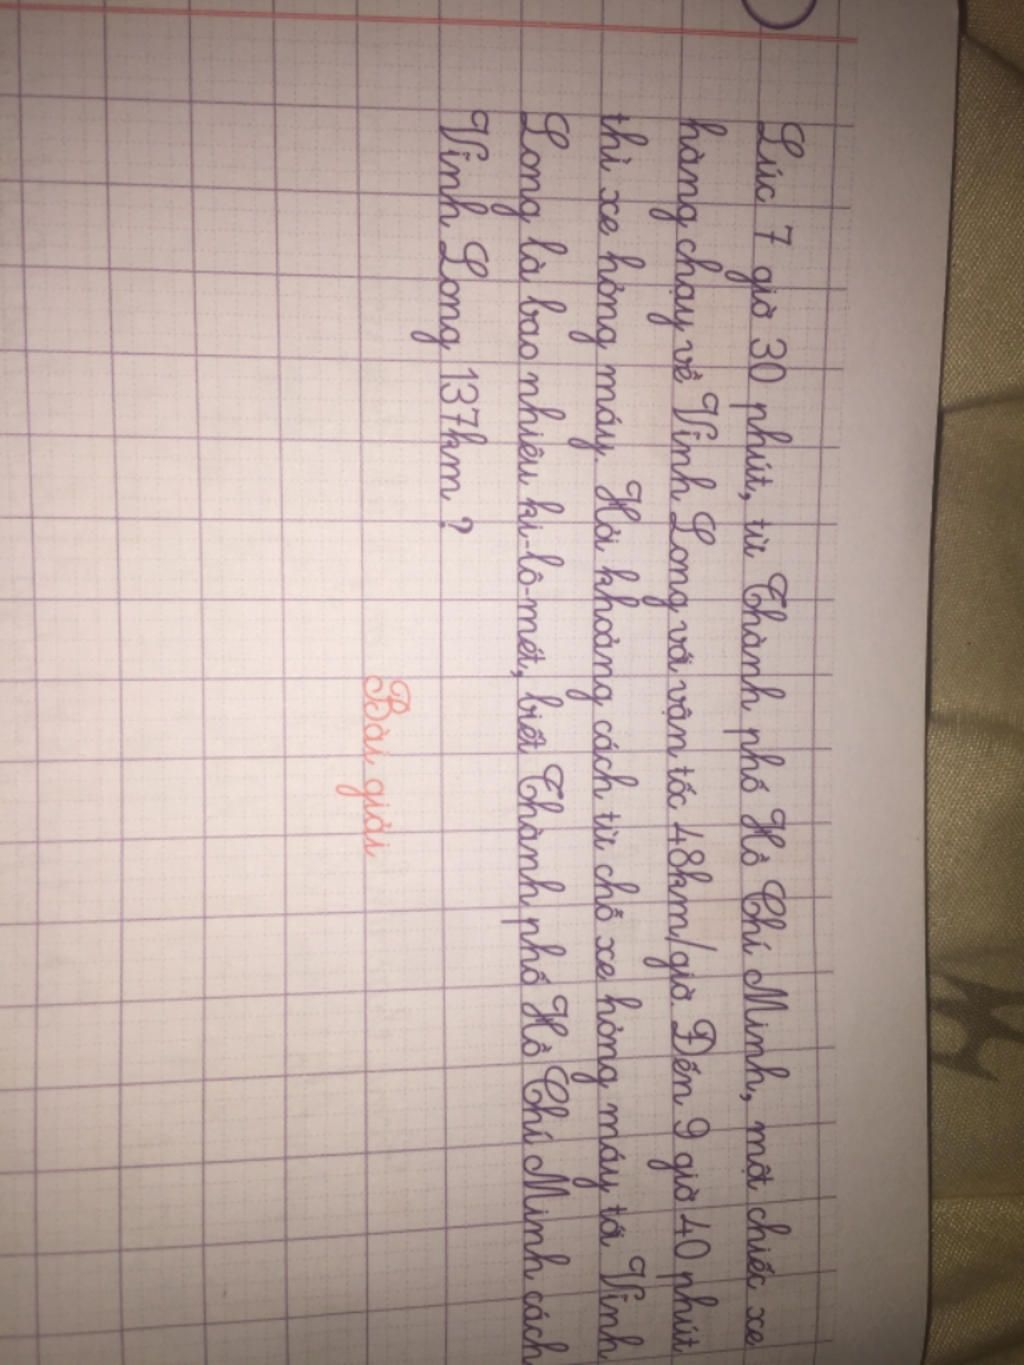 Lúc 7 giờ 30 phút, từ Thành phố Hồ Chí Minh, một chiếc xe
hàng chạy về Vĩnh Long với vận tốc 48km/giờ. Đến 9 giờ 40 phút
thì xe hỏng máy. Hỏi khoảng cách từ chỗ xe hỏng máy tới Vĩnh
Long là bao nhiêu ki-lô-mét, biết Thành phố Hồ Chí Minh cách
Vĩnh Long 137km?
Bài giải